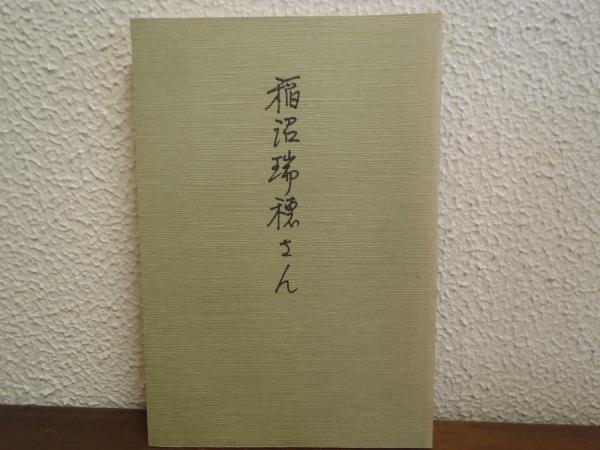 稲沼瑞穂さん